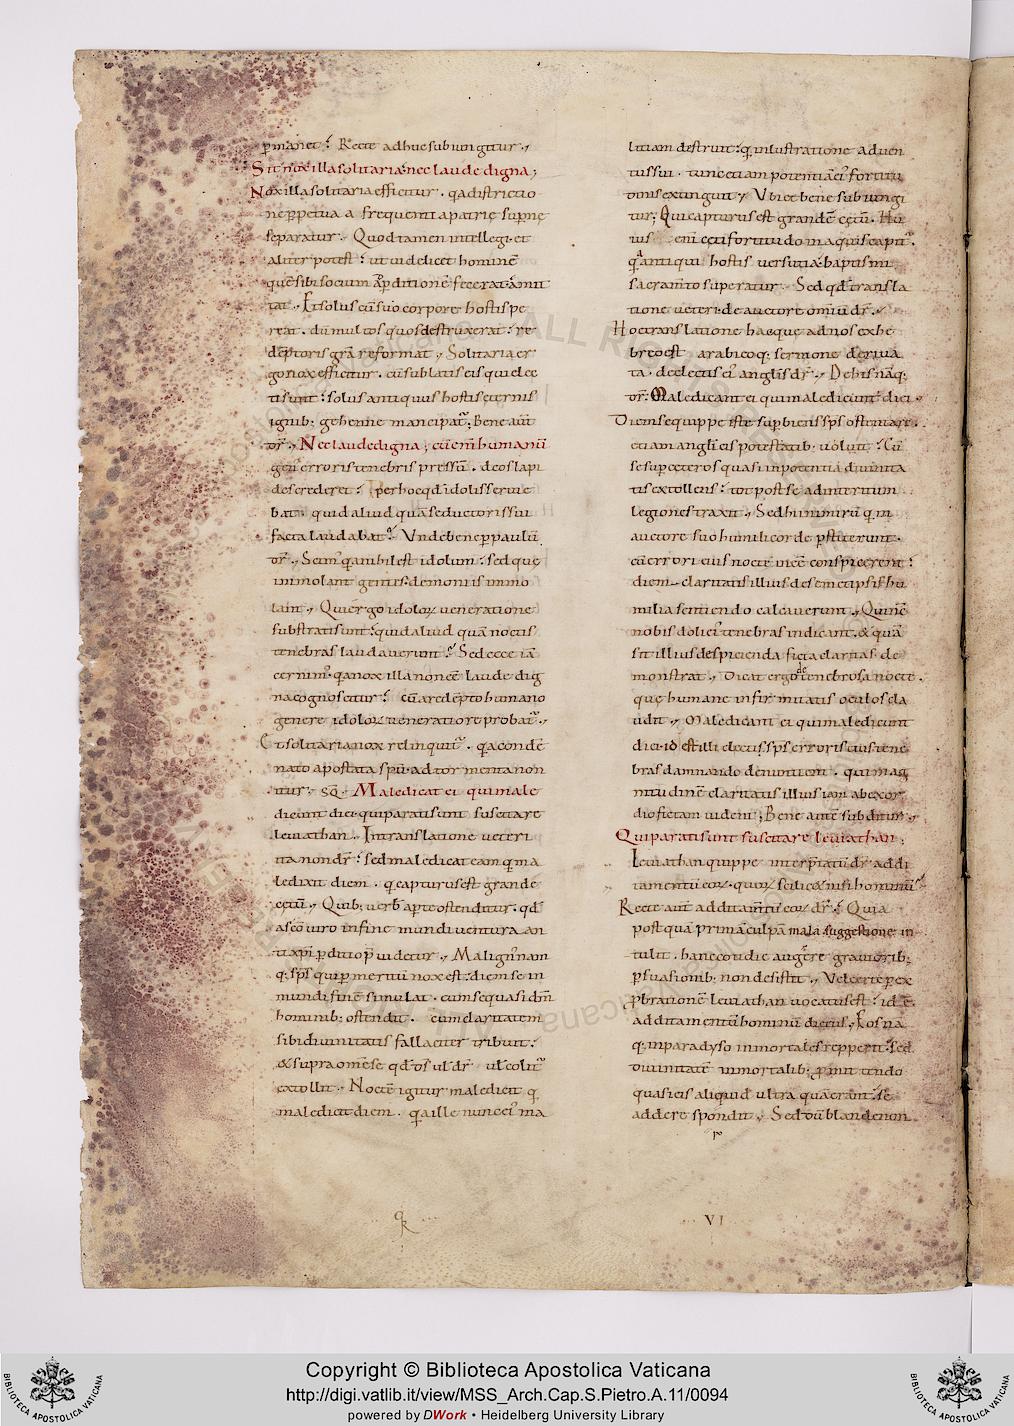 p̄manet᷑ Recte adhuc subiungitur ,,
Sit nox illa solitaria: nec laude digna ;
Nox illa solitaria efficitur . qa districtio
ne p̄petua a frequentia patrię supnę
separatur ,, Quod tamen intellegi et
aliter potest : ut uidelicet hominē
quē sibi socium ad pditionē fecerat amit
tat ,, Et solus cū suo corpore hostis pe
reat . dū multos quos destruxerat : re
dēptoris grā reformat ,, Solitaria er
go nox efficitur . cū sublatis eis qui elec
ti sunt : solus antiquus hostis ęternis
ignib; gehenne mancipat̄; Bene autē
Nec laude digna ; cū enī humanū
genˢ erroris tenebris pressū . deos lapi
des crederet : per hoc qd̄ idolis seruie
bat . quid aliud quā seductoris sui
facta laudabat? Vnde bene p paulū
dr̄ ,, Scimˢ qa nihil est idolum : sed que
immolant gentes demoniis immo
lant ,, Qui ergo idoloꝝ ueneratione
substrati sunt : quid aliud quā noctis
tenebras laudauerunt ? Sed ecce iā
cernimˢ qa nox illa non ēē laude dig
na cognoscitur : cū a redēpto humano
genere idoloꝝ ueneratio reprobat̄ ,,
Et solitaria nox relinquit̄ . qa cū dē
nato apostata spū ad tormenta non
itur ,, Sq̄ . Maledicat ei qui male
dicunt diei qui parati sunt suscitare
leuiathan ,, In translatione ueteri
ita non dr̄ : sed maledicat eam q̄ ma
ledixit diem . q̄ capturus est grande
cetū ,, Quib; uerb̄ apte ostenditur . qd̄
a sc̄o uiro in fine mundi uentura an
tixpi pditio p̄uidetur ,, Malignˢ nam
q; sp̄s qui p meritū nox est : diem se in
mundi finē simulat . cum se quasi dm̄
hominib; ostendit . cum claritatem
sibi diuinitatis fallaciter tribuit :
& supra omē se qd̄ dr̄ uł ds uł colit̄
extollit ,, Noctē igitur maledicit q
maledicit diem . qa ille nunc eiˢ ma
litiam destruit: q̄ inlustratione aduen
tus sui . tunc etiam potentiā eiˢ fortitu
dinis extinguit ,, Vbi et bene subiungi
tur; Qui capturus est grandē cetū . Hu
ius enī ceti fortitudo in aquis capit̄.
qa antiqui hostis uersutia baptismi
sacramto superatur ,, Sed qd̄ transla
tione ueteri de auctore omiū dr̄ ,,
Hoc translatione hac que ad nos ex he
breo est arabicoq; sermone deriua
ta . de electis eiˢ anglis dr̄ ,, De his nāq;
dr̄: Maledicant ei qui maledicunt diei ,,
Diem se quippe iste supbiens sp̄s ostentare .
etiam angli eis potestatib; uoluit : Cū
se sup ceteros quasi in potentia diuinita
tis extollens : tot post se ad interitum
legiones traxit ,, Sed hi nimirū q in
auctore suo humili corde pstiterunt .
cū errori eius noctē inēē conspicerent :
diem claritatis illius de semetipsis hu
milia sentiendo calcauerunt ,, Qui nc̄
nobis doli eiˢ tenebras indicant . & quā
sit illius despicienda ficta claritas de
monstrat ,, Dicat ergo de tenebrosa nocte .
que humane infirmitatis oculos clau
dit ,, Maledicant ei qui maledicunt
diei . id est illi electi sp̄s erroris eius tene
bras damnando denuntient . qui mag
nitudinē claritatis illius iam ab exor
dio fictam uident ; Bene autē subditur ,,
Qui parati sunt suscitare leuiathan ;
Leuiathan quippe interp̄tatū dr̄ addi
tamentū eoꝝ . quoꝝ scilic& nisi hominū ?
Recte autē additamtū eoꝝ dr̄ : Quia
postquā primā culpā mala suggestione in
tulit . hanc cotidie augere grauiorib;
psuasionib; non desistit ,, Vel certe p ex
p̄brationē leuiathan uocatus est : id ē
additamentū hominū dictus ,, Eos nā
q; in paradyso inmortales repperit : sed
diuinitatē inmortalib; pmittendo
quasi eis aliquid ultra quā erant : se
addere spondit ,, Sed dū blande non
VI
Copyright © Biblioteca Apostolica Vaticana
http://digi.vatlib.it/view/MSS_Arch.Cap.S.Pietro.A.11/0094
powered by DWork • Heidelberg University Library
BIBLIOTECA APOSTOLICA VATICANA
BIBLIOTECA APOSTOLICA VATICANA